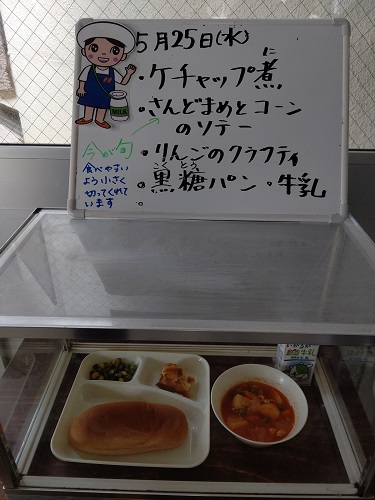 5月25日(水)
・ケチャップ煮に
・さんどまめとコーン
のソテー
・りんごのクラフティ
・黒糖こくとうパン・牛乳
今が旬
食べやすい
よう小さく
切ってくれて
います
MILK
牛乳